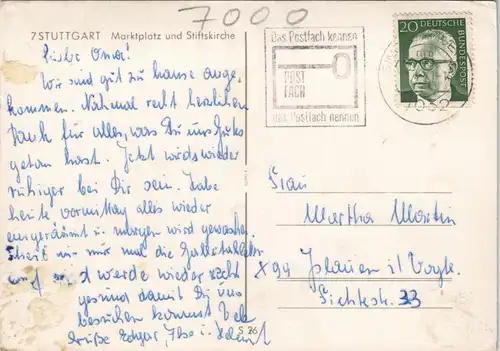 7000
7 STUTTGART Marktplatz und Stiftskirche
Liebe Oma!
Wir sind gut zu hause ange-
kommen. Nochmal recht herzlichen
Dank für alles, was Du uns Gutes
getan hast. Jetzt wirds wieder
ruhiger bei Dir sein. Habe
heute vormittag alles wieder
eingeräumt u. morgen wird gewaschen.
Schreib mir mal die
auf und werde wieder recht
gesund damit Du uns
besuchen kommst. Viele
Grüße Edgar, Ilse u. Helmut
Das Postfach kennen
POST
FACH
das Postfach nennen
20
DEUTSCHE
BUNDESPOST
7032
Frau
Martha Martin
X99 Plauen i/Vogtl.
Fichtestr. 33
S 26